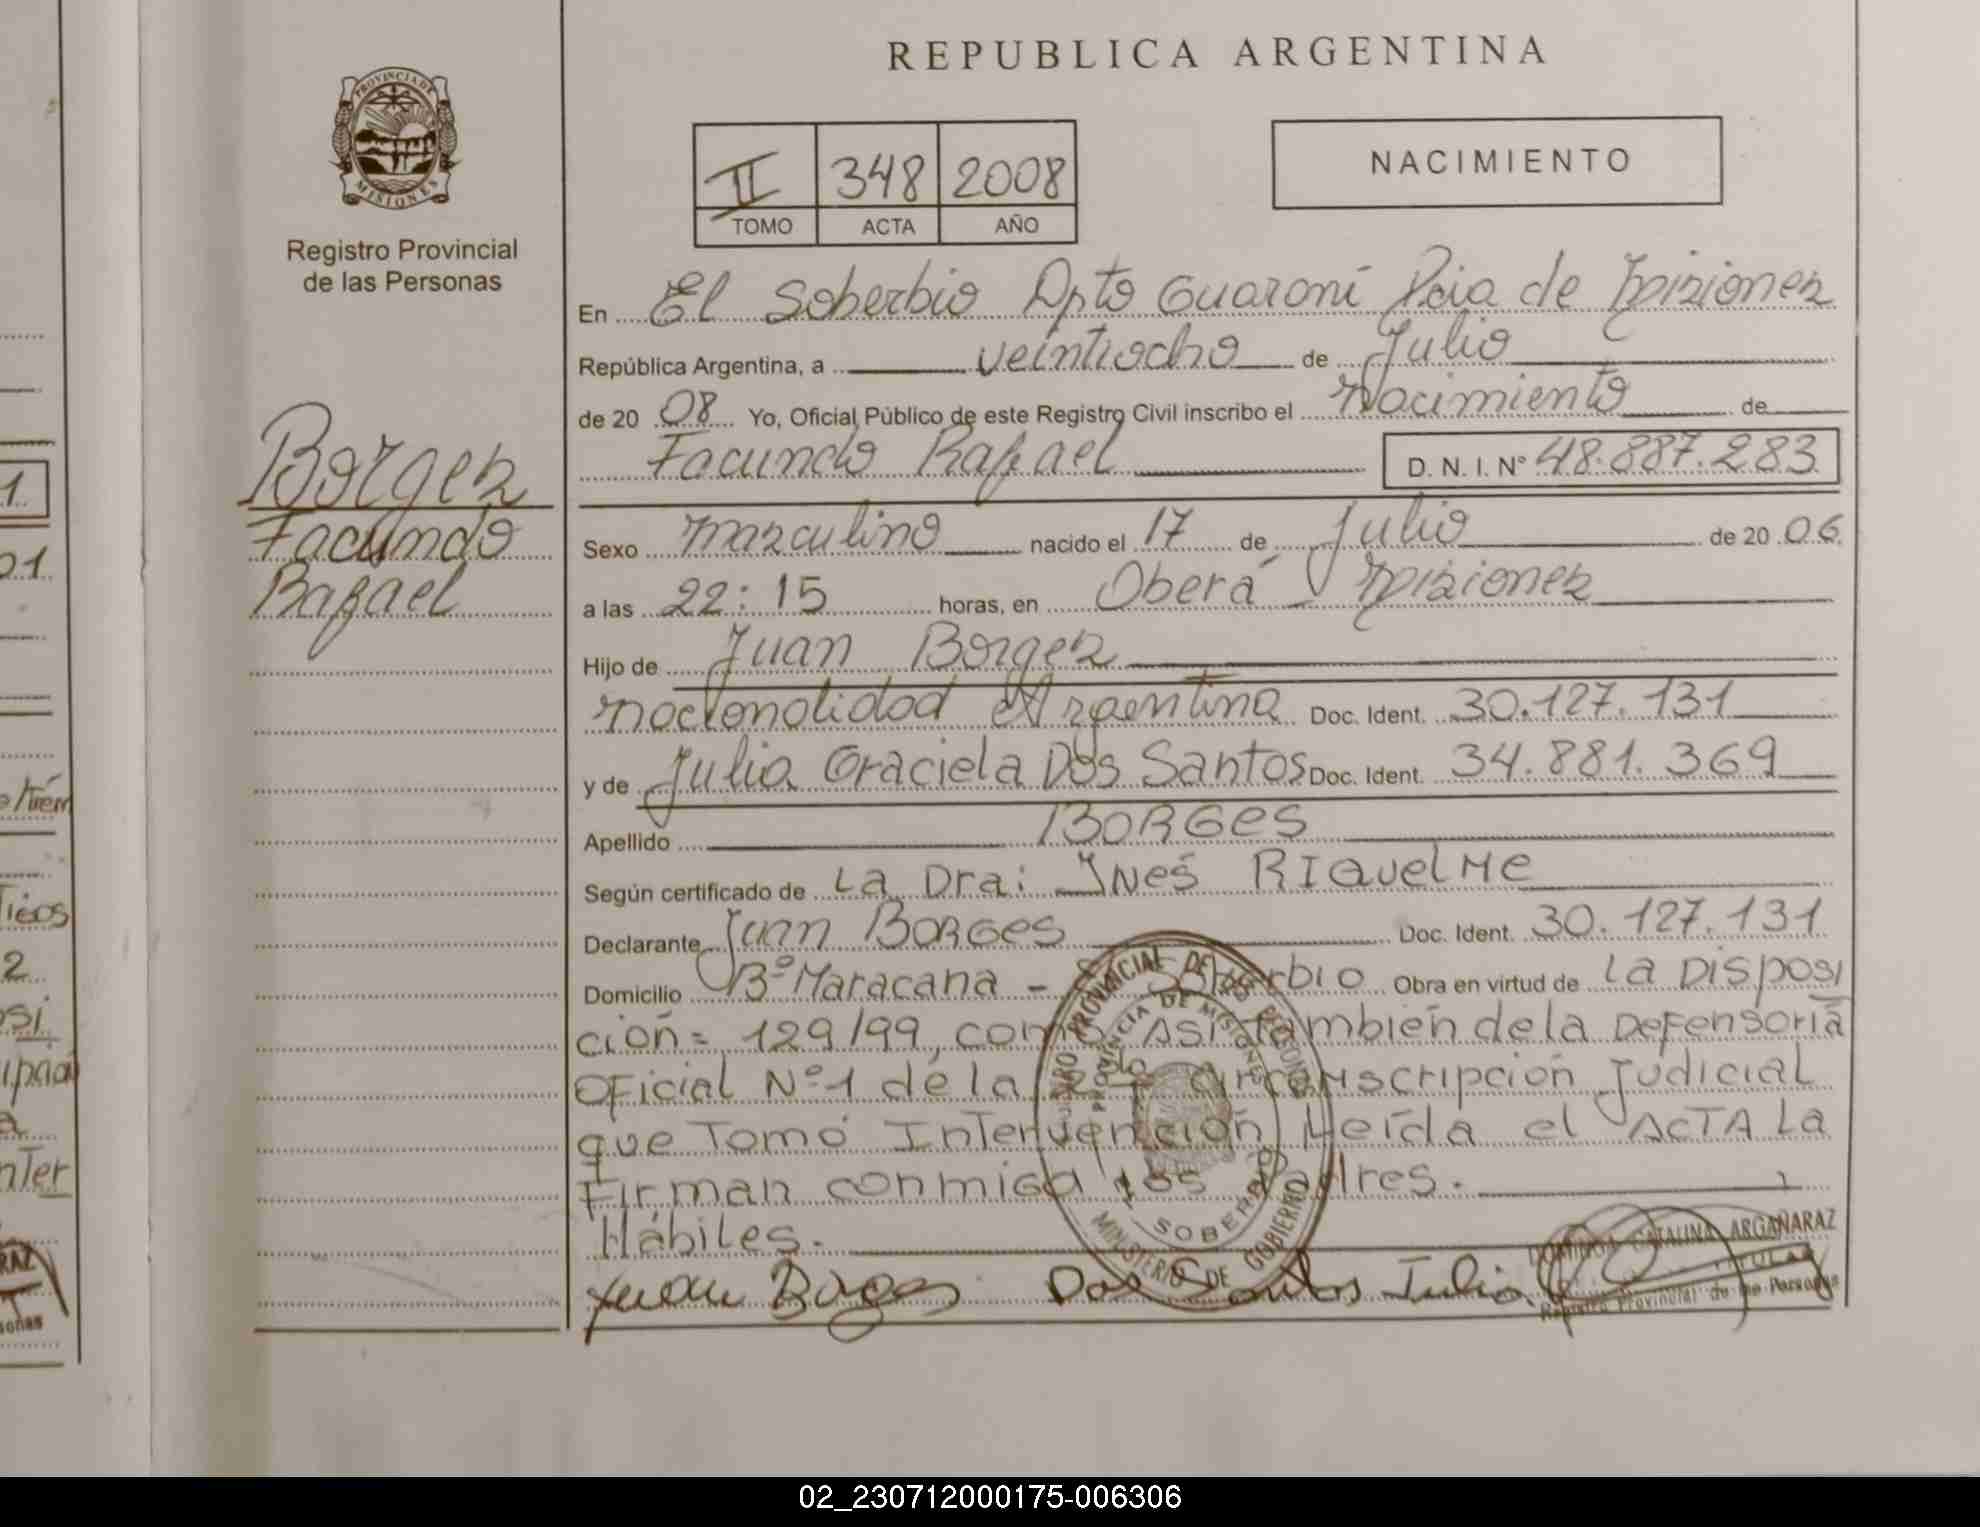 REPUBLICA ARGENTINA
PROVINCIA DE
MISIONES
Registro Provincial
de las Personas
II 348 2008
TOMO ACTA AÑO
NACIMIENTO
En El Soberbio Dpto Guaraní Pcia de Misiones
República Argentina, a veintiocho de Julio
de 20 08 Yo, Oficial Público de este Registro Civil inscribo el Nacimiento de
Facundo Rafael D. N. I. Nº 48.887.283
Borges
Facundo
Rafael
Sexo masculino nacido el 17 de Julio de 20 06
a las 22:15 horas, en Oberá Misiones
Hijo de Juan Borges
nacionalidad Argentina Doc. Ident. 30.127.131
y de Julia Graciela Dos Santos Doc. Ident. 34.881.369
Apellido BORGES
Según certificado de La Dra: Ines RIQuelMe
Declarante Juan BORGes Doc. Ident. 30.127.131
Domicilio Bº Maracana - Soberbio Obra en virtud de La Disposi
ción= 129/99, como Asi también de la Defensoria
Oficial Nº1 de la circunscripción Judicial
que Tomó Intervención Leída el ACTA La
Firman conmigo los Padres.
Hábiles.
Juan Borges Dos Santos Julia
REGISTRO PROVINCIAL DE LAS PERSONAS
PROVINCIA DE MISIONES
SOBERBIO
MINISTERIO DE GOBIERNO
CATALINA ARGAÑARAZ
TITULAR
Registro Provincial de las Personas
1.
01.
2
osi
nTer
RAZ
sonas
02_230712000175-006306